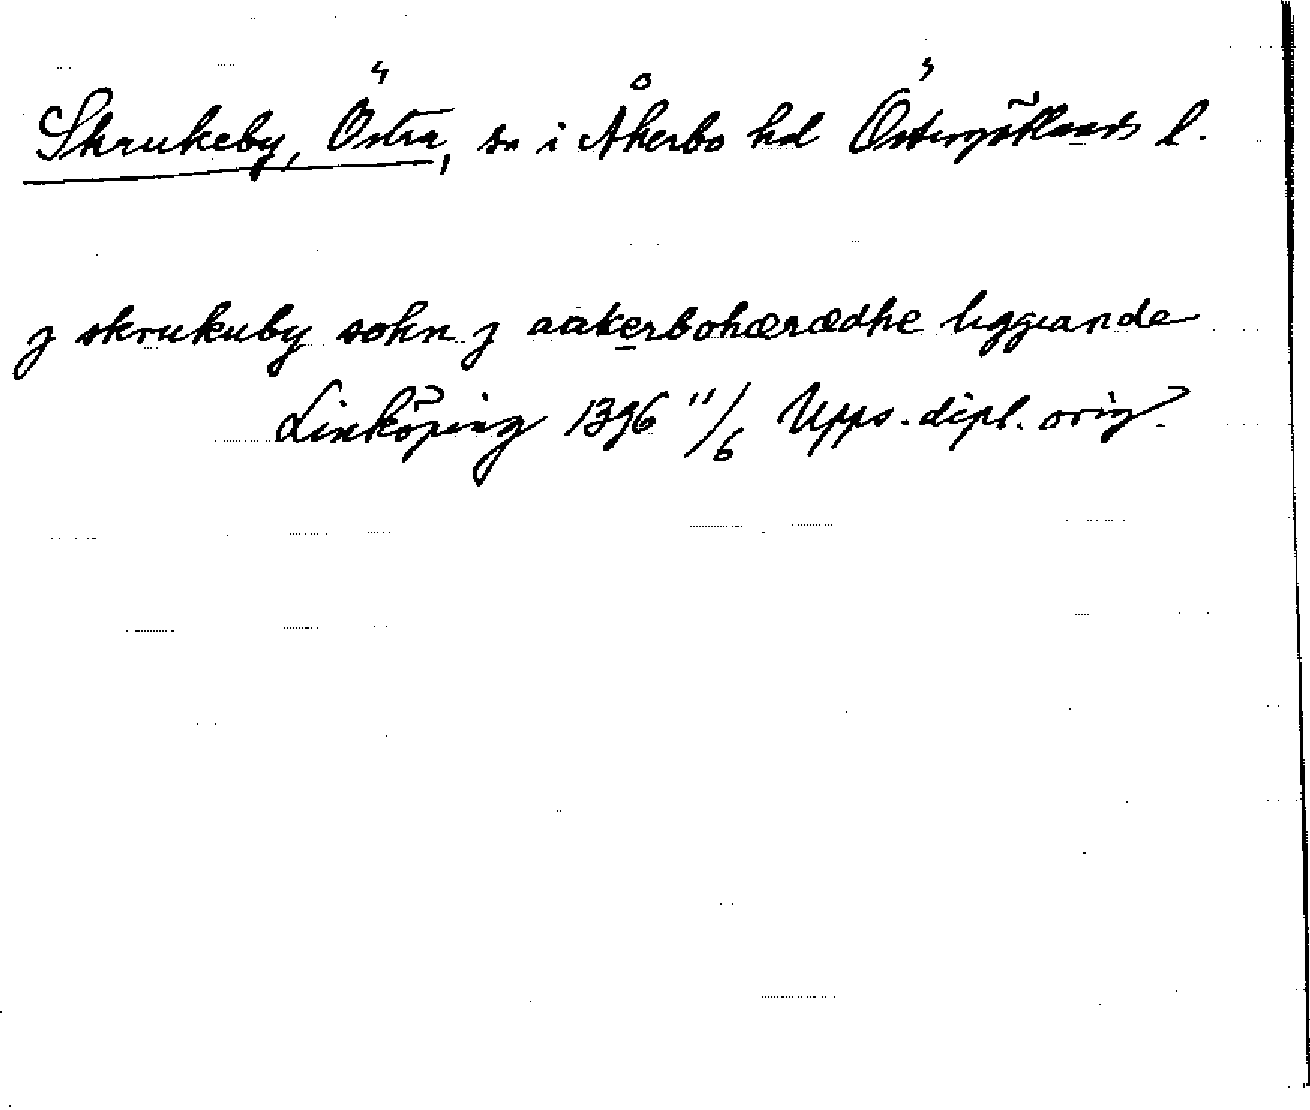 Skrukeby, Östra, sn i Åkerbo hd Östergötlands l.
j skrukuby sokn j aakerbohæradhe liggiande
Linköping 1396 11/6 Upps. dipl. orig.